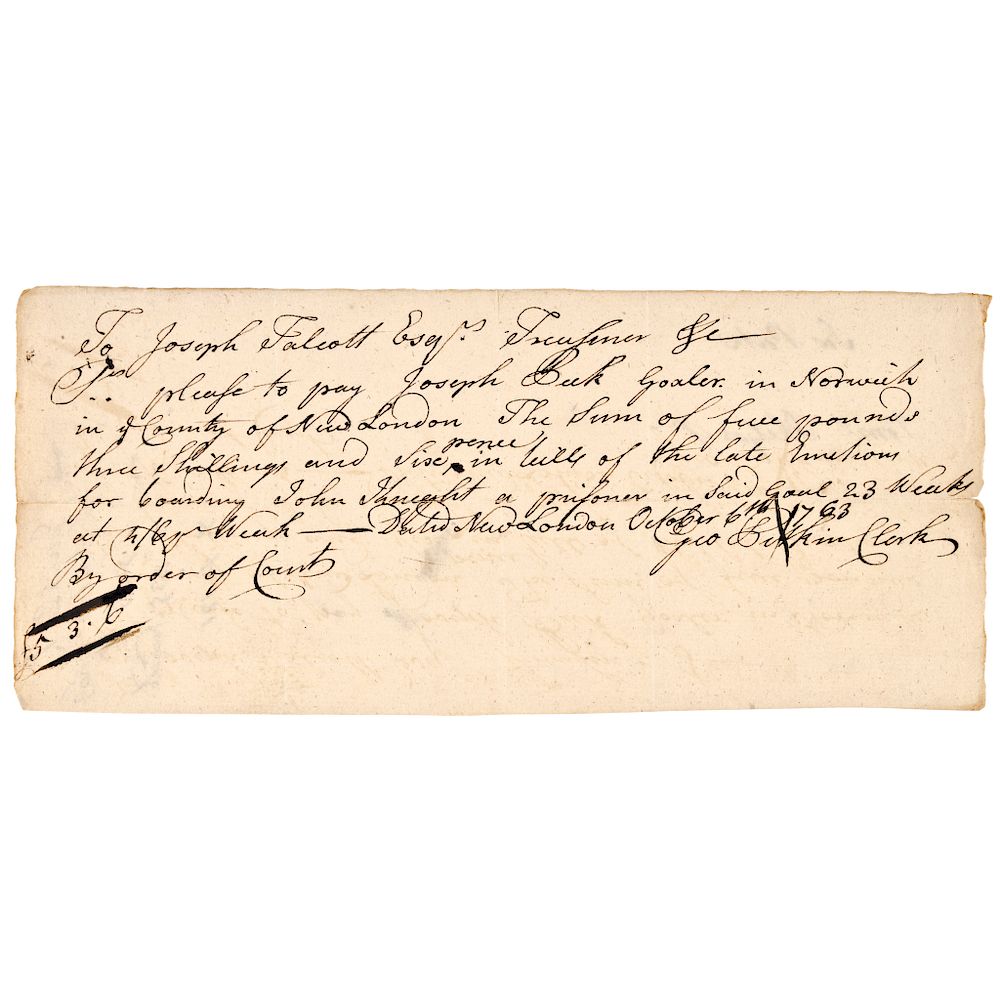 To Joseph Talcott Esqrs Treasurer &c
Sr.. please to pay Joseph Peck Goaler in Norwich
in ye County of New London The Sum of five pounds
three Shillings and Six pence in bills of the late Emetions
for boarding John Knight a prisoner in Said Goal 23 Weeks
at 4/6 pr Week — Dated New London October 6th 1763
By order of Court Geo Pitkin Clerk
£5 3. 6